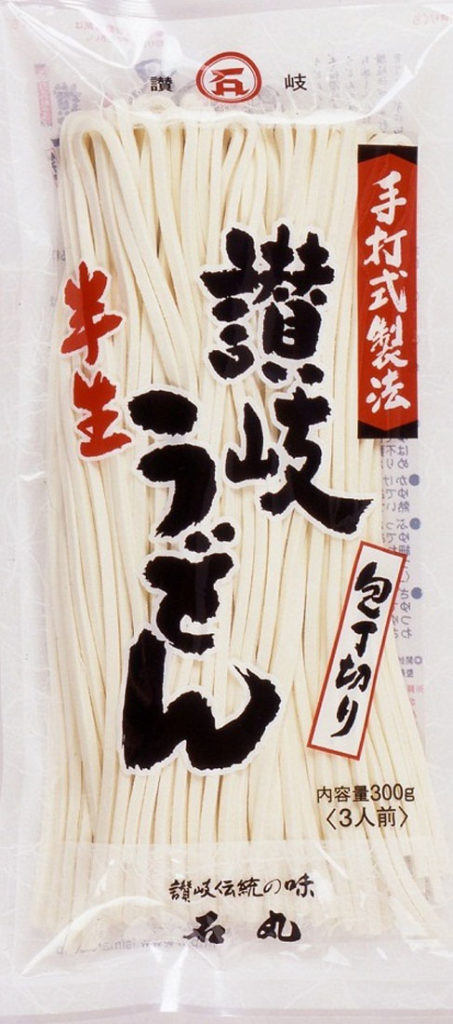 讃 石 岐
手打式製法
讃岐
うどん
半生
包丁切り
内容量300g
〈3人前〉
讃岐伝統の味
石丸